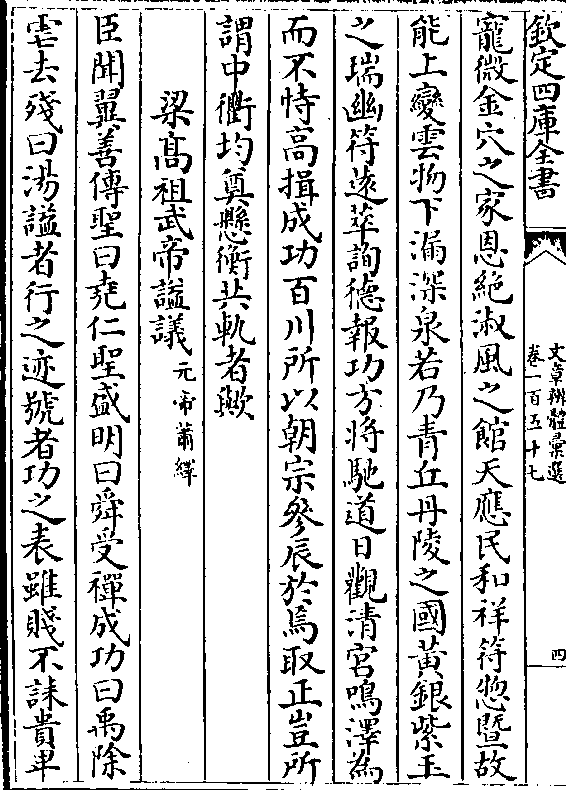 欽定四庫全書
文章辨體彙選
卷一百五十七
四
寵微金穴之家恩絶淑風之館天應民和祥符總暨故
能上變雲物下漏深泉若乃青丘丹陵之國黄銀紫玉
之瑞幽符遠萃詢德報功方將馳道日觀清宮鳴澤為
而不恃高揖成功百川所以朝宗參辰於焉取正豈所
謂中衢均奠懸衡共軌者歟
梁髙祖武帝諡議元帝蕭繹
臣聞翼善傳聖曰堯仁聖盛明曰舜受禪成功曰禹除
虐去殘曰湯諡者行之迹號者功之表雖賤不誄貴卑